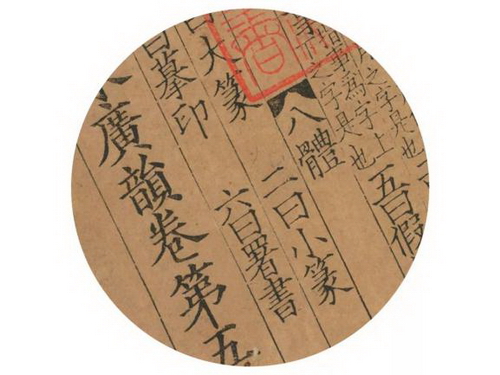 字是也
之字上
為字是也 五曰假
之字是
八體
曰大篆 二曰小篆
曰摹印 六曰署書
廣韻卷第五